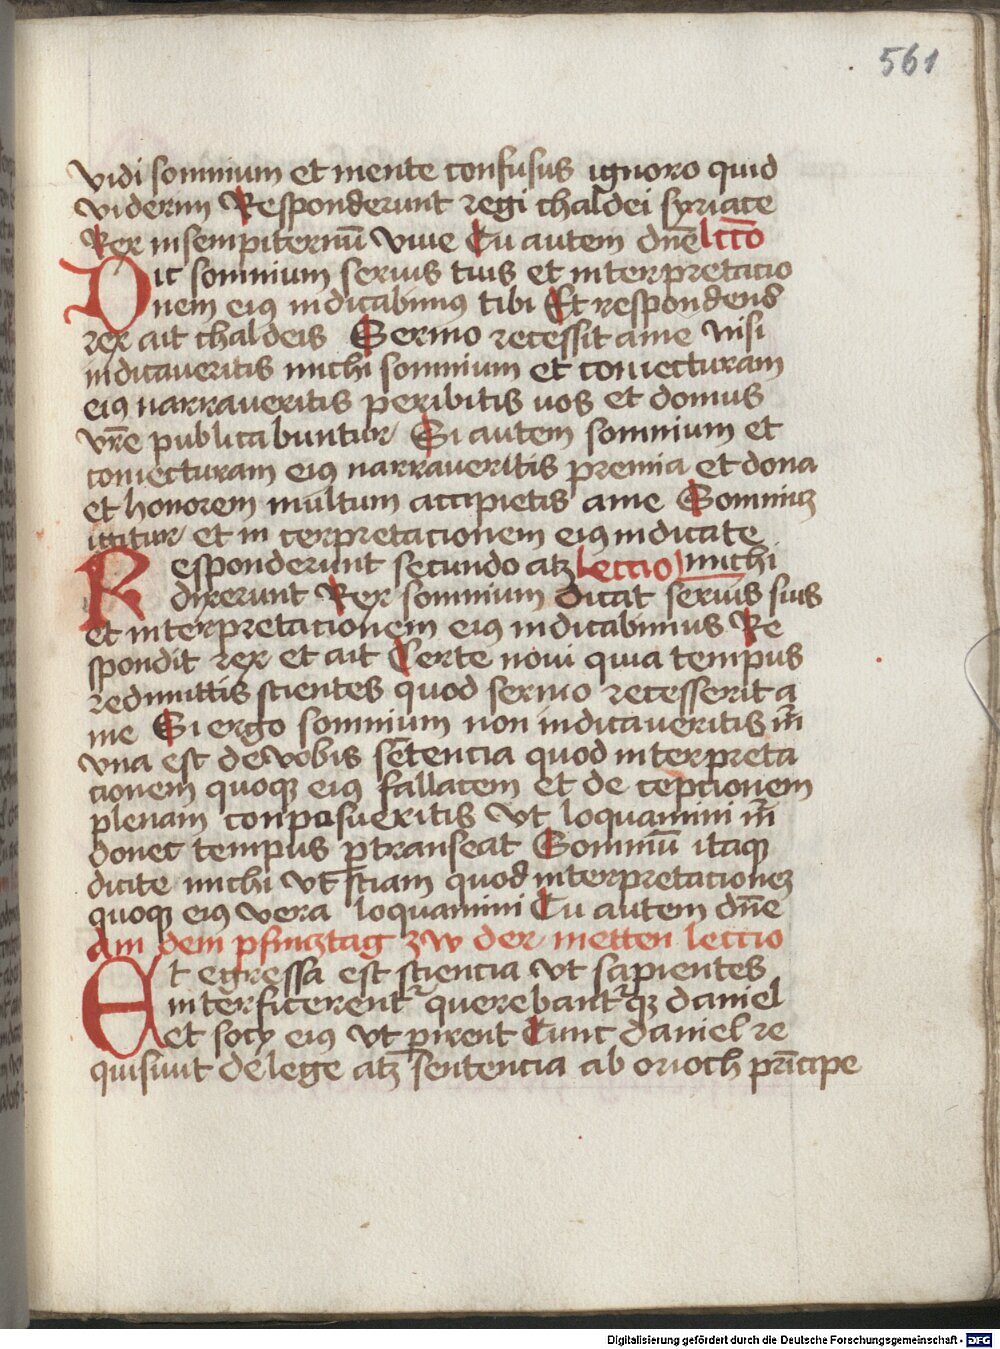 561
vidi somnium et mente confusus ignoro quid
viderim Responderunt regi chaldei syriace
Rex insempiternū vive Tu autem dn̄e lctō
Dic somnium servis tuis et interpretacio
nem eiꝯ indicabimꝯ tibi Et respondens
rex ait chaldeis Sermo recessit ame Nisi
indicaveritis michi somnium et coniecturam
eiꝯ narraveritis peribitis uos et domus
vr̄e publicabuntur Si autem somnium et
coniecturam eiꝯ narraveritis premia et dona
et honorem multum accipietis ame Somniuꝫ
igitur et in terpretacionem eiꝯ indicate
Responderunt secundo atqꝫ leccio michi
dixerunt Rex somnium dicat servis suis
et interpretacionem eiꝯ indicabimus Re
spondit rex et ait Certe novi quia tempus
redimittis scientes quod sermo recesserit a
me Si ergo somnium non indicaveritis m̄
vna est de vobis sētencia quod interpreta
cionem quoqꝫ eiꝯ fallacem et de cepcionem
plenam conposueritis vt loquamini m̄
donec tempus ꝑtranseat Somniū itaqꝫ
dicite michi vt sciam quod interpretacioneꝫ
quoqꝫ eiꝯ vera loquamini Tu autem dn̄e
Am dem pfincztag zw der metten leccio
Et egressa est sciencia vt sapientes
interficerentᷣ querebantᷣqꝫ daniel
et socy eiꝯ vt ꝑirent Tunc daniel re
quisiuit de lege atqꝫ sentencia ab orioch prīcipe
Digitalisierung gefördert durch die Deutsche Forschungsgemeinschaft - DFG